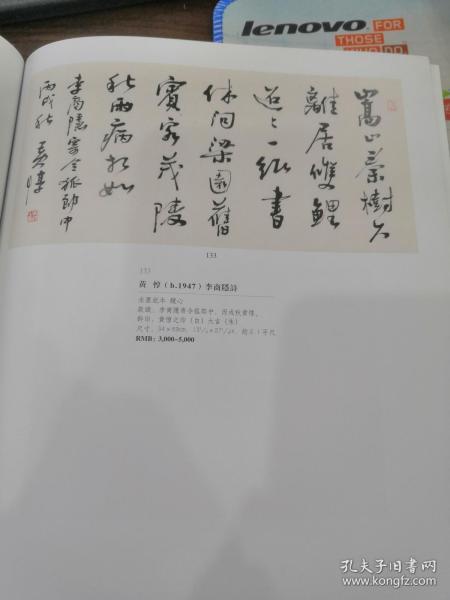 嵩云秦樹久
離居雙鯉
迢〻一紙書
休問梁園舊
賓客茂陵
秋雨病相如
李商隱寄令狐郎中
丙戌秋 黃惇
lenovo FOR
THOSE
WHO DO
133
133
黃 惇（b.1947）李商隱詩
水墨紙本 鏡心
款識：李商隱寄令狐郎中。丙戌秋黃惇。
鈐印：黃惇之印（白）大吉（朱）
尺寸：34×69cm.
RMB: 3,000-5,000
孔夫子旧书网
www.kongfz.com